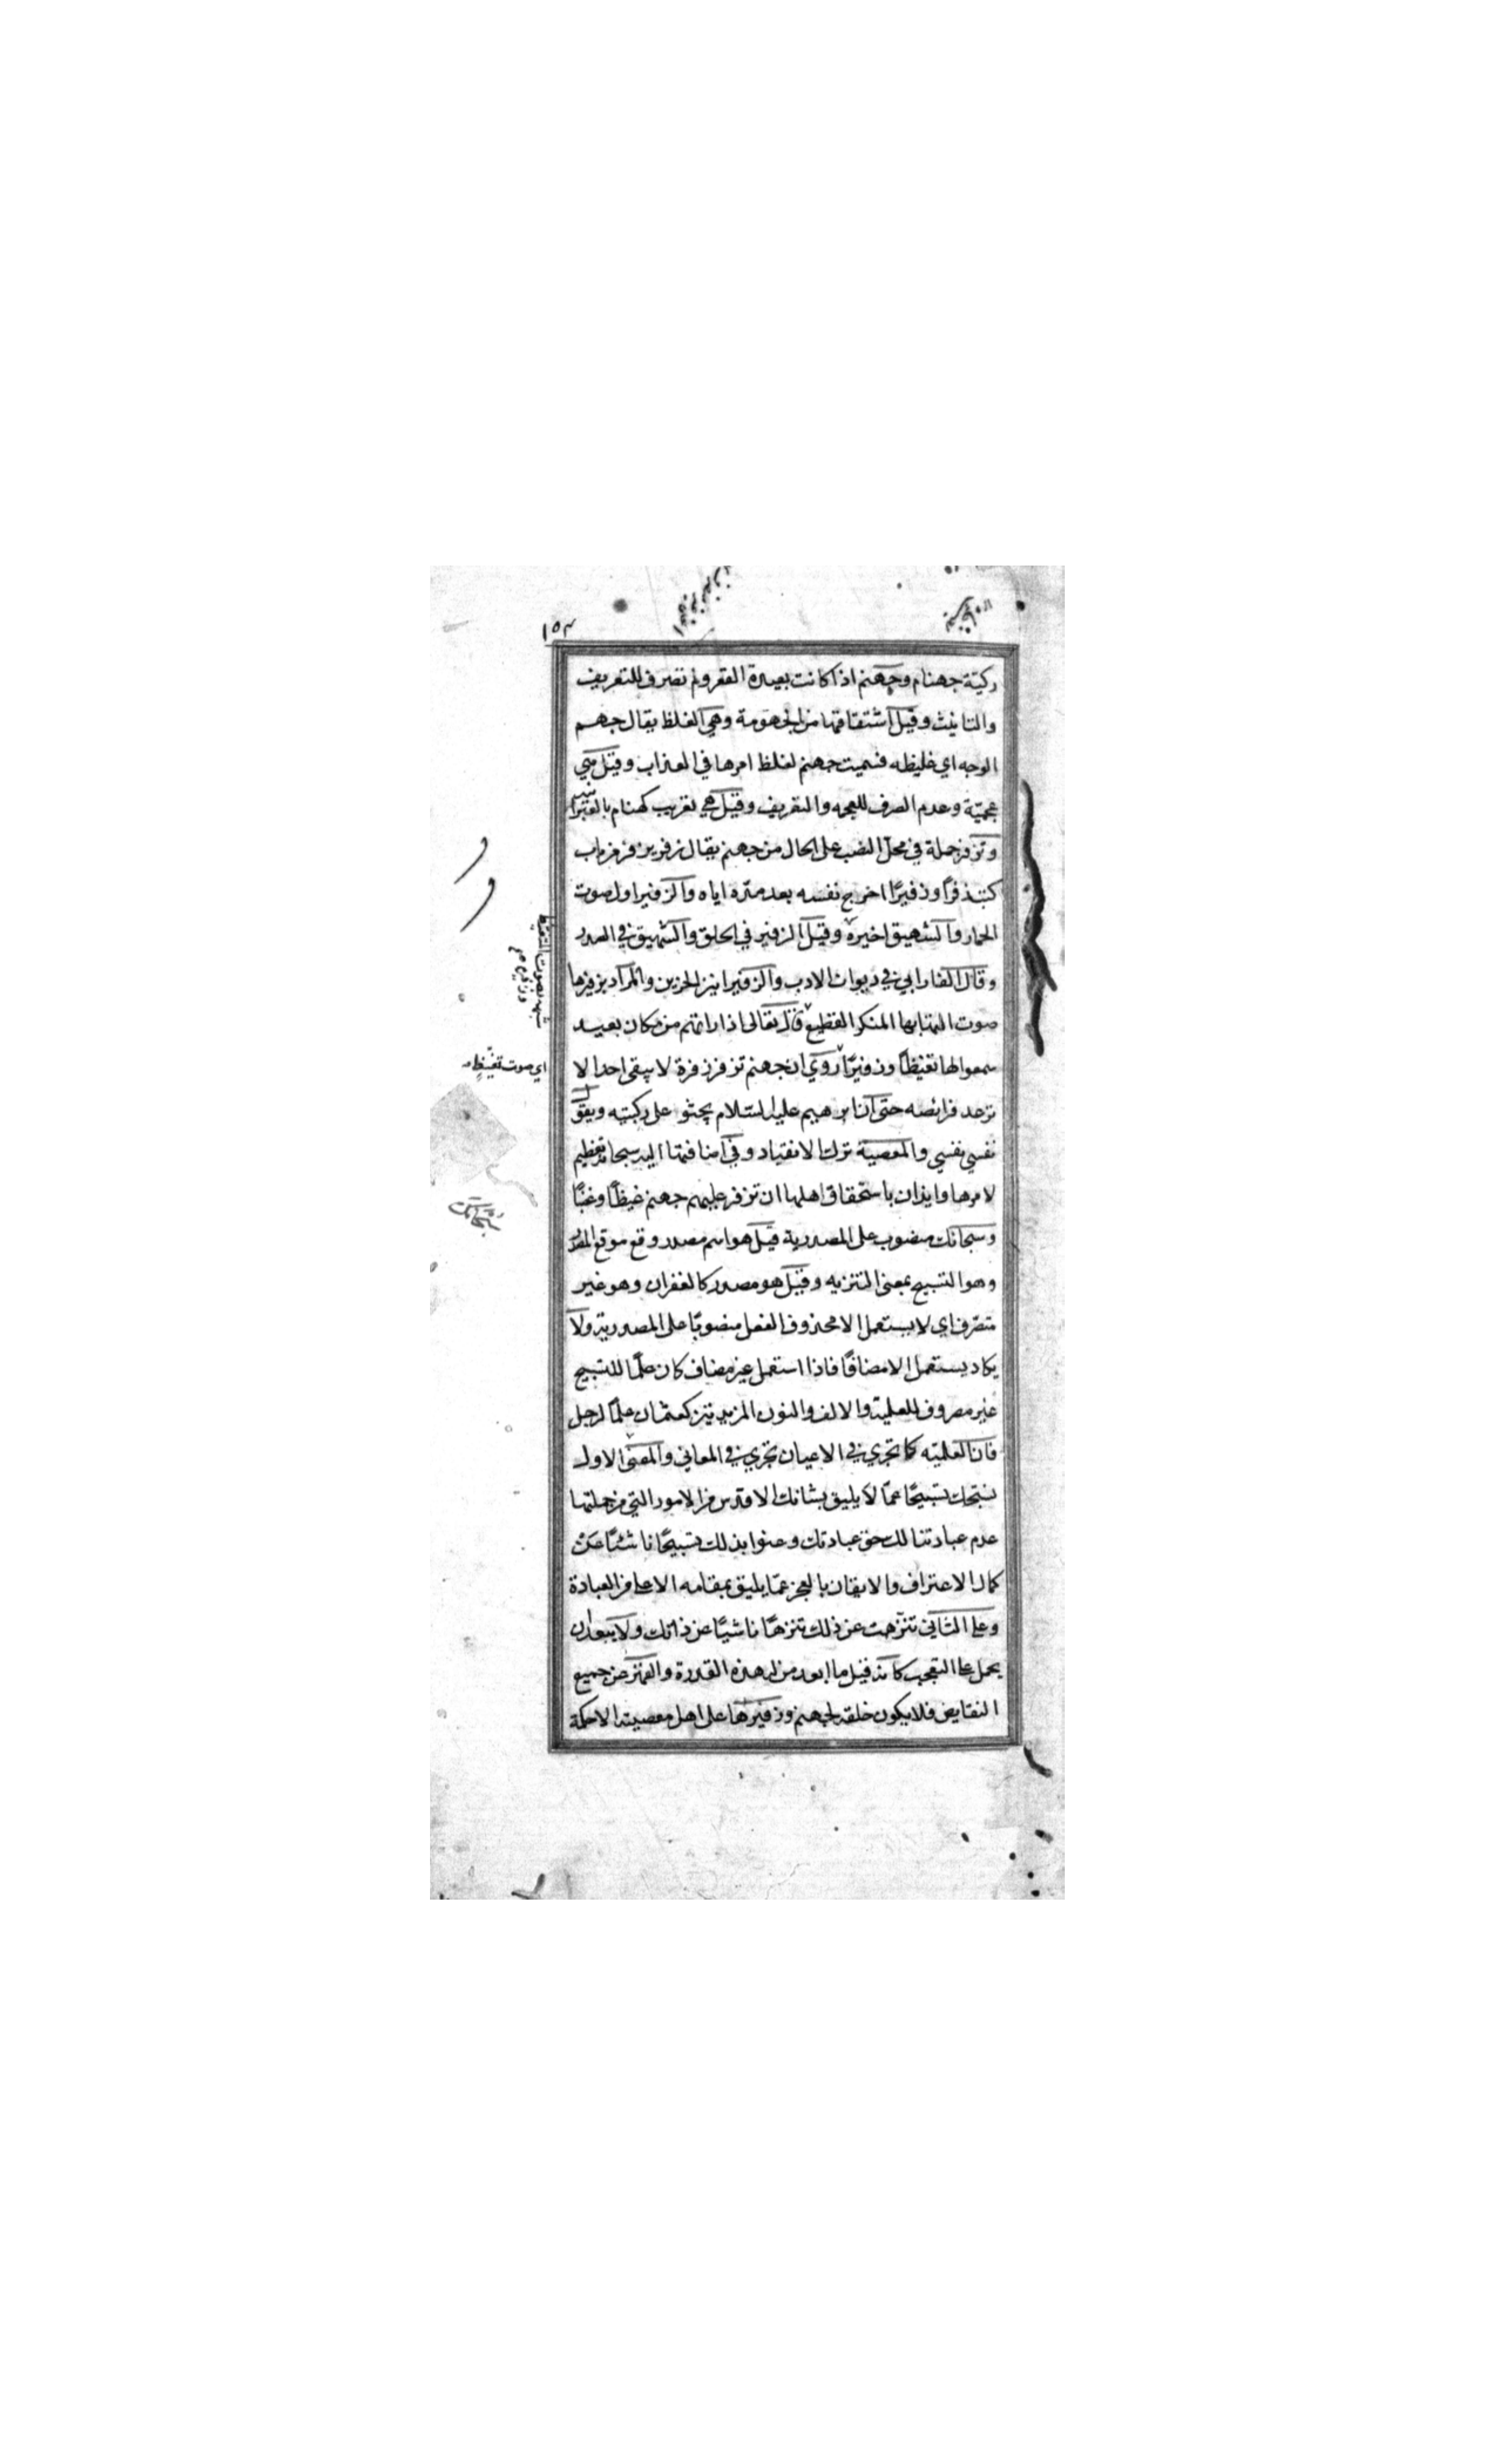 ١٥٣
ركيّة جهنام وجهنم اذا كانت بعيدة القعر ولم تصرف للتعريف
والتانيث وقيل اشتقاقها من الجهومة وهي الغلظ يقال جهم
الوجه اي غليظه فسميت جهنم لغلظ امرها في العذاب وقيل هي
عجميّة وعدم الصرف للعجمه والتعريف وقيل هي تعريب كهنام بالعبرانيه
وتزفر جملة في محل النصب على الحال من جهنم يقال زفر يزفر من باب
كتب زفرًا وزفيرًا اخرج نفسه بعد مدّه اياه والزفير اول صوت
الحمار والشهيق اخيره وقيل الزفير في الحلق والشهيق في الصدر
وقال الفارابي في ديوان الادب والزفير انين الحزين والمراد بزفيرها
صوت التهابها المنكر الفظيع قال تعالى اذا راتهم من مكان بعيد
سمعوا لها تغيظًا وزفيرًا روي ان جهنم تزفر زفرة لا يبقى احد الا
ترعد فرائصه حتى ان ابرهيم عليه السلام يجثو على ركبتيه ويقول
نفسي نفسي والمعصية ترك الانقياد وفي اضافتها اليه سبحانه تعظيم
لامرها وايذان باستحقاق اهلها ان تزفر عليهم جهنم غيظًا وغضبًا
وسبحانك منصوب على المصدرية قيل هو اسم مصدر وقع موقع المصدر
وهو التسبيح بمعنى التنزيه وقيل هو مصدر كالغفران وهو غير
متصرّف اي لا يستعمل الا محذوف الفعل منصوبًا على المصدرية ولا
يكاد يستعمل الا مضافًا فاذا استعمل غير مضاف كان علمًا للتسبيح
غير مصروف للعلمية والالف والنون المزيدتين كعثمان علمًا لرجل
فان العلميّه كما تجري في الاعيان تجري في المعاني والمعنى الاول
نسبّحك تسبيحًا عمّا لا يليق بشانك الاقدس من الامور التي من جملتها
عدم عبادتنا لك حق عبادتك وعنوا بذلك تسبيحًا ناشئًا عن
كمال الاعتراف والايقان بالعجز عمّا يليق بمقامه الاعلى من العبادة
وعلى الثاني تنزّهت عن ذلك تنزهًا ناشيًا عن ذاتك ولا يبعد ان
يحمل على التعجب كانه قيل ما ابعد من له هذه القدرة والتنزه عن جميع
النقايص فلا يكون خلقه لجهنم وزفيرها على اهل معصيته الا حكمة
شبه بصوت التغيّظ
اي صوت تغيّظ
سبحانك